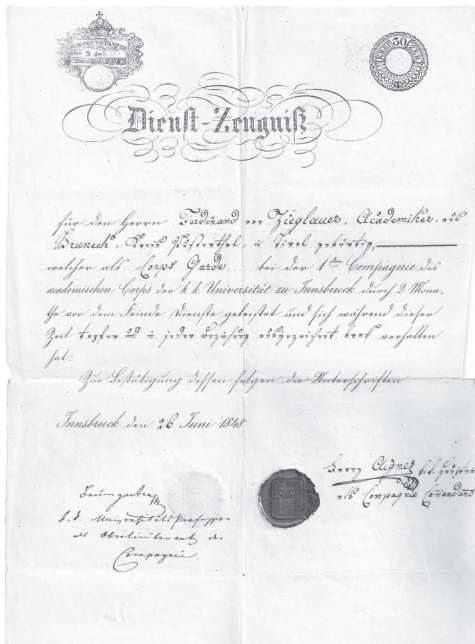 30
Dienst-Zeugniß
für den Herrn Ferdinand von Zieglauer, Academiker, aus
Bruneck, Kreis Pusterthal, in Tirol gebürtig,
welcher als Corps Garde bei der 1ten Compagnie des
academischen Corps der k. k. Universität zu Innsbruck durch 2 Mona-
the vor dem Feinde Dienste geleistet und sich während dieser
Zeit tapfer und in jeder Beziehung ausgezeichnet brav verhalten
hat.
Zur Bestätigung dessen folgen die Unterschriften
Innsbruck den 26 Juni 1848
als Compagnie Comandant
k. k. Universitätsprofessor
als Oberlieutenant der
Compagnie.